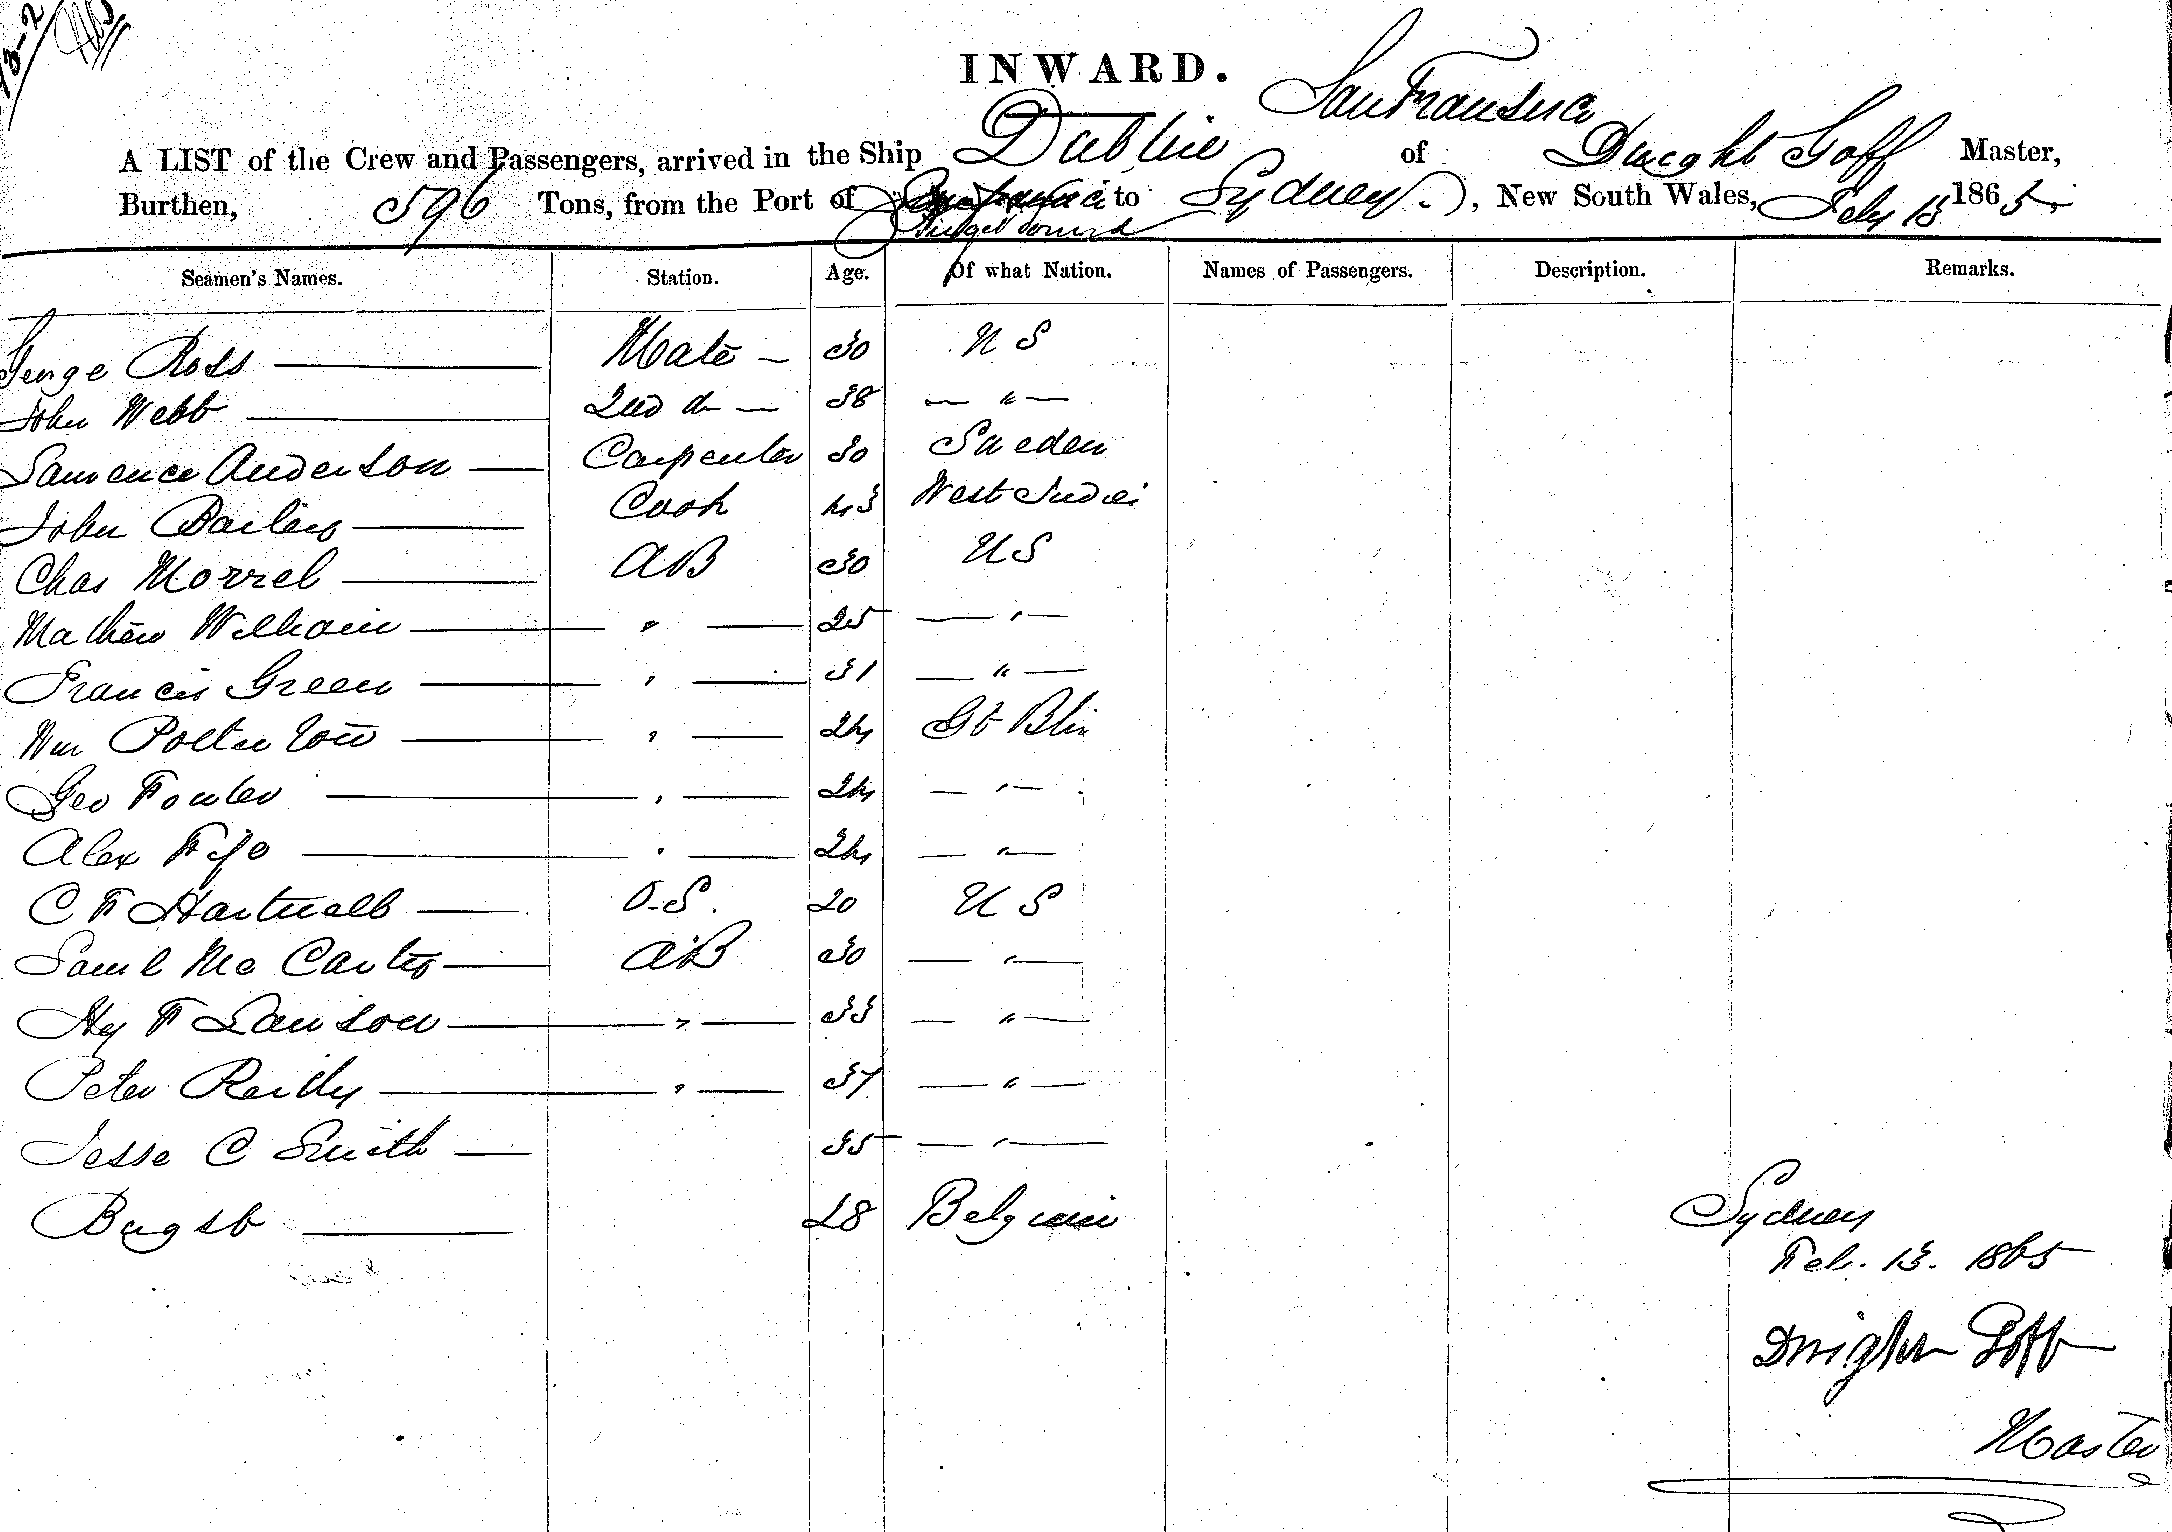 INWARD.
San Fransisco
A LIST of the Crew and Passengers, arrived in the Ship Dublin of Dwight Goff Master,
Burthen, 596 Tons, from the Port of to Sydney, New South Wales, Feby 13 1865.
Puget Sound
Seamen's Names. Station. Age. Of what Nation. Names of Passengers. Description. Remarks.
George Ross Mate 30 U S
John Webb 2nd do 38 "
Lawrence Anderson Carpenter 30 Sweden
John Cook 43 West Indies
Chas Morrel AB 30 US
Mathew William " 25 "
Francis Green " 31 "
Wm " 24 Gt Btn
Geo Fowler " 24 "
Alex Fife " 24 "
C F Hartwell O.S. 20 U S
Saml Mc Carter AB 30 "
Hy F Lawson " 33 "
Peter Reilly " 37 "
Jesse C Smith 35 "
28 Belgium
Sydney
Feb. 13. 1865
Dwight Goff
Master